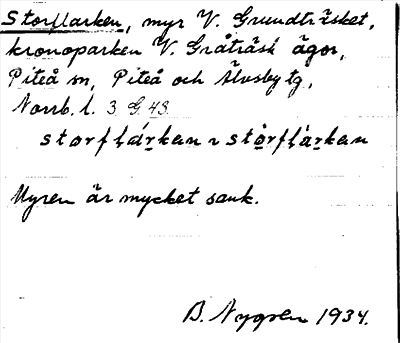 Storflarken, myr V. Grundträsket,
kronoparken V. Gråträsk ägor,
Piteå sn, Piteå och Älvsby tg,
Norrb. l. 3 G. 43.
storflárkan ~ stòrflàrkan
Myren är mycket sank.
B. Nygren 1934.